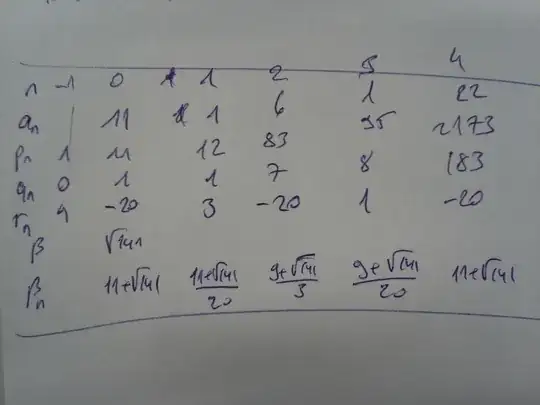 n -1 0 1 2 3 4
a_n 11 1 6 1 22
p_n 1 11 12 83 95 2173
q_n 0 1 1 7 8 183
r_n -20 3 -20 1 -20
β √141
β_n 11+√141 (11+√141)/20 (9+√141)/3 (9+√141)/20 11+√141